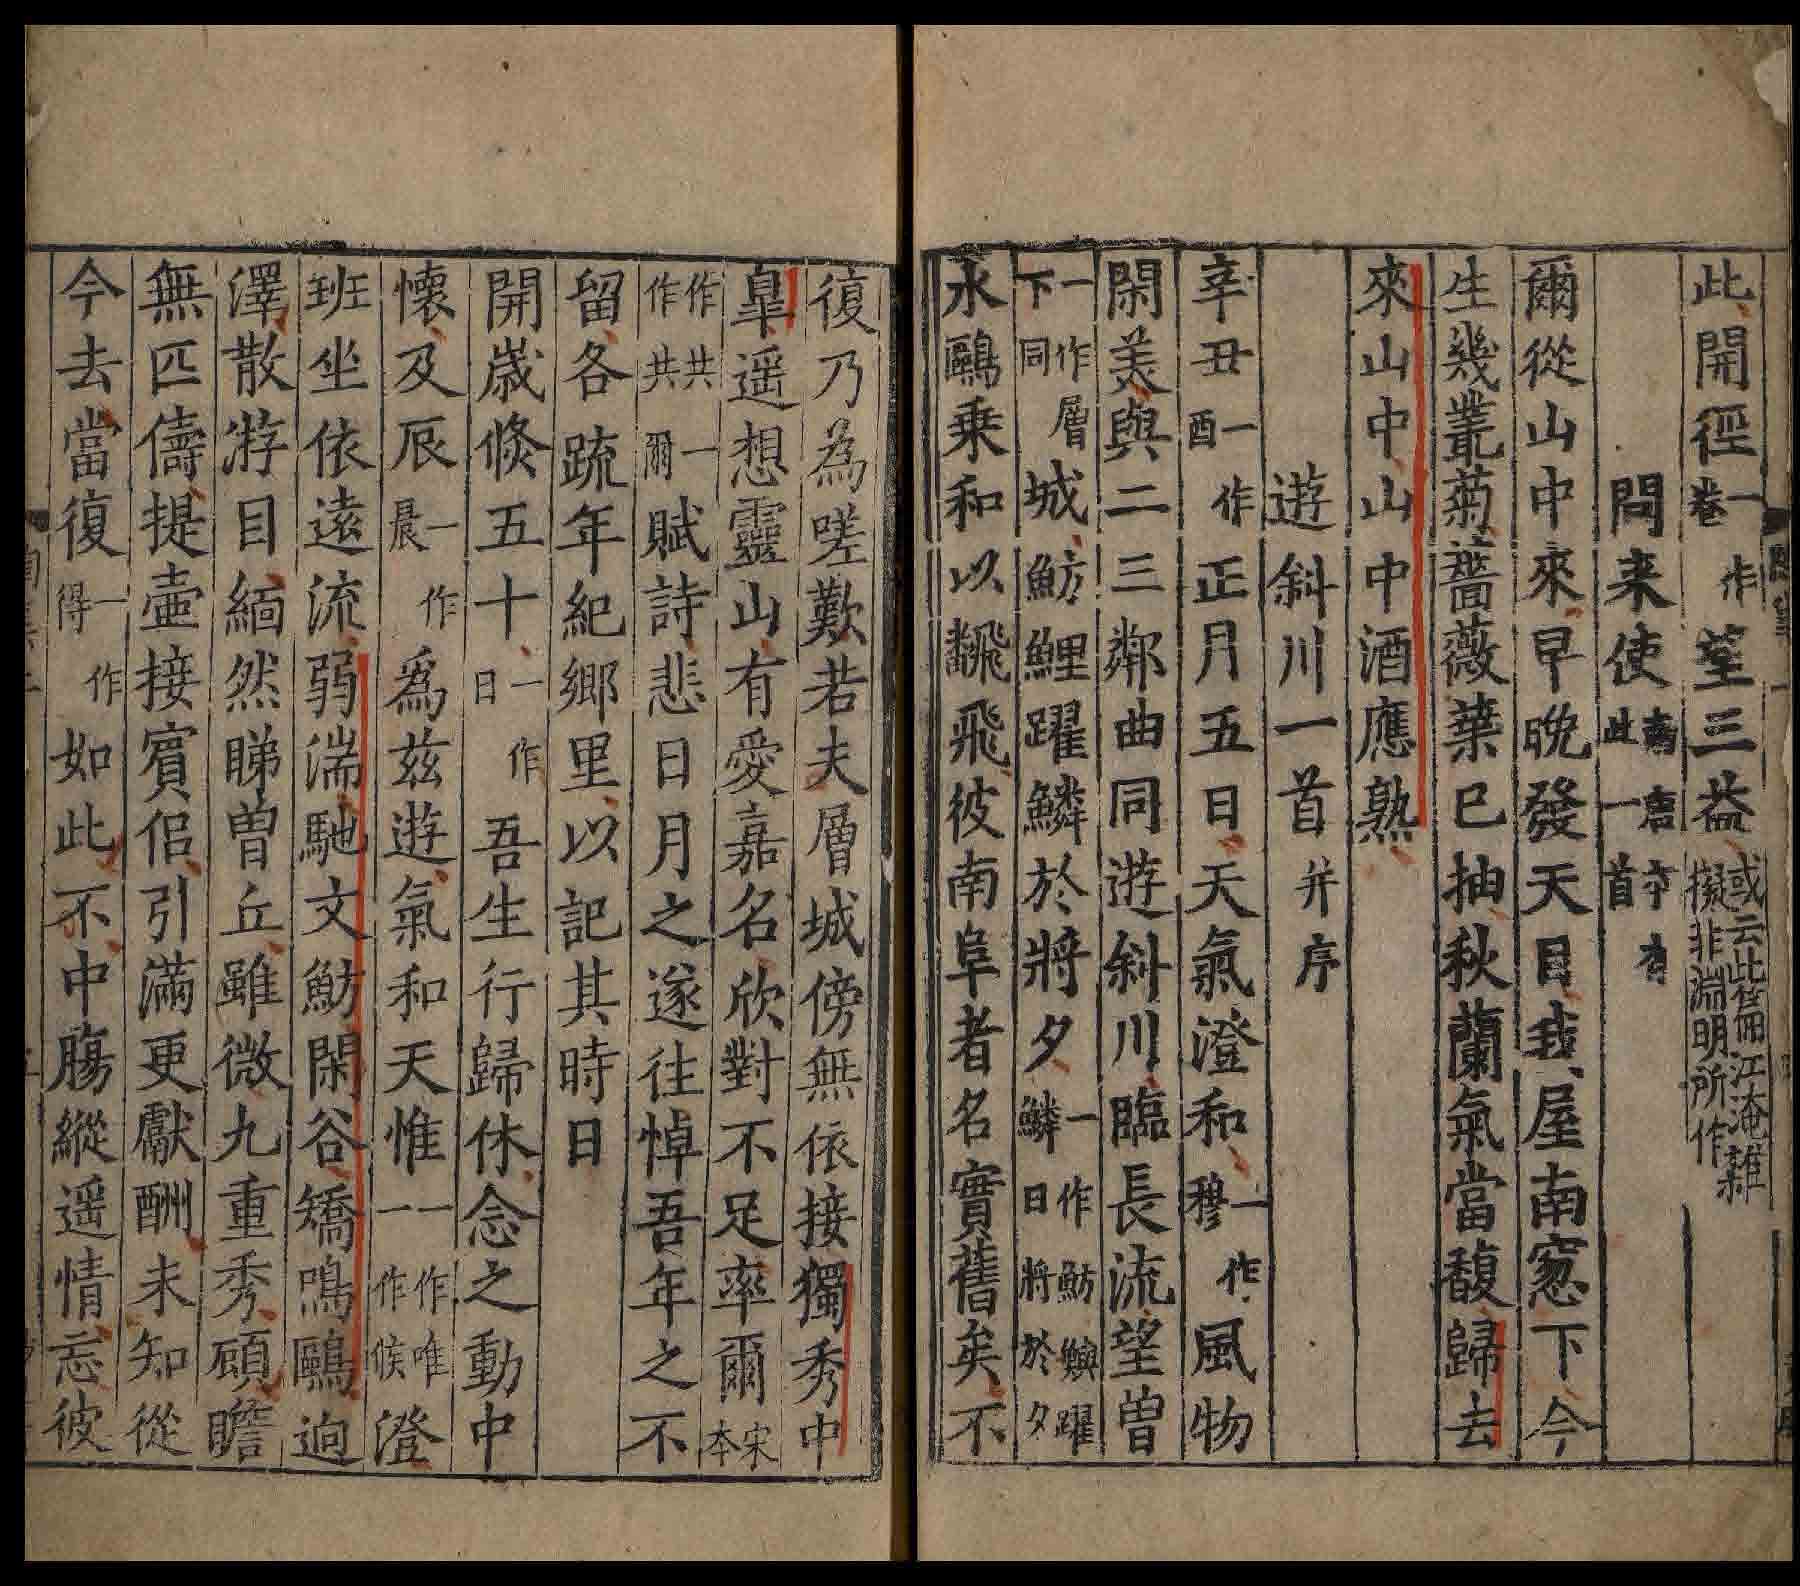 此開徑一作卷望三益或云此篇江淹雜擬非淵明所作
問来使南唐本有此一首
爾從山中來早晚發天目我屋南窓下今
生幾叢菊薔薇葉已抽秋蘭氣當馥歸去
來山中山中酒應熟
遊斜川一首并序
辛丑一作酉正月五日天氣澄和一作穆風物
閑美與二三鄰曲同遊斜川臨長流望曾
一作層下同城魴鯉躍鱗於將夕一作魴鱮躍鱗日將於夕
水鷗乗和以飜飛彼南阜者名實舊矣不
復乃為嗟歎若夫層城傍無依接獨秀中
皐遥想靈山有愛嘉名欣對不足率爾宋本
作共一作共爾賦詩悲日月之遂往悼吾年之不
留各疏年紀鄉里以記其時日
開歲倐五十一作日吾生行歸休念之動中
懷及辰一作晨爲兹遊氣和天惟一作唯一作候澄
班坐依遠流弱湍馳文魴閑谷矯鳴鷗迥
澤散游目緬然睇曽丘雖微九重秀顧瞻
無匹儔提壷接賓侣引滿更獻酬未知從
今去當復一作得如此不中觴縱遥情忘彼